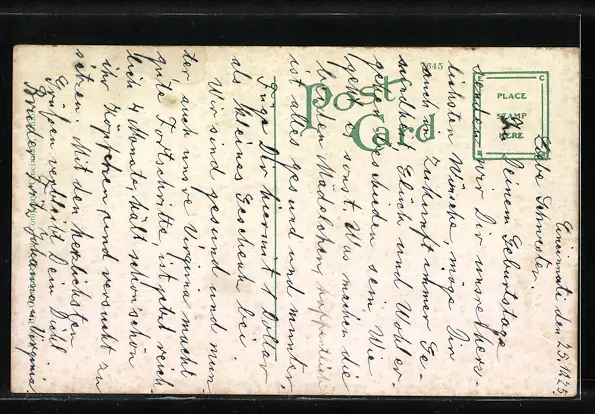 Cincinnati den 25. 1925
Liebe Schwester.
Zu Deinem Geburtstage
senden wir Dir unsre herz-
lichsten Wünsche, möge Dir
auch in Zukunft immer Ge-
sundheit Glück und Wohler-
gehen beschieden sein. Wie
geht es sonst. Was machen die
beiden Mädelchen, hoffentlich
ist alles gesund und munter.
Füge Dir hiermit 1 Dollar
als kleines Geschenk bei.
Wir sind gesund und mun-
ter auch unsre Virginia macht
gute Fortschritte, ist jetzt reich-
lich 4 Monate hält schon schön
ihr Köpfchen und versucht zu
sitzen. Mit den herzlichsten
Grüßen verbleibt Dein
Bruder Fritz Johanna u. Virginia
Post
Card
PLACE
STAMP
HERE